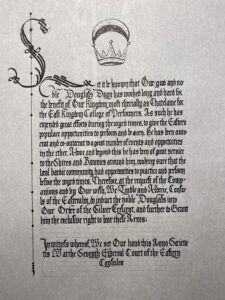 Let it be known that Our good and no
ble Douglass Dogn has worked long and hard for
the benefit of Our Kingdom, most especially as Chatelaine for
the East Kingdom College of Performers. As such he has
expended great efforts during the aged times, to give the Eastern
populace opportunities to perform and learn. He has been autocrat
and co-autocrat to a great number of events and opportunities
in the ether. Above and beyond this he has been of great service
to the Shires and Baronies around him, making sure that the
local bardic community had opportunities to practice and perform
before the aged times. Therefore, at the request of the Comp
anions and by Our wish, We and Consuls
of the Easterealm, do induct the noble Douglass into
Our Order of the Silver Crescent, and further do Grant
him the exclusive right to bear these Arms:
In witness whereof, We set Our hand this Anno Societa
tis at the Seventh Ethereal Court of the Eastern
Consules